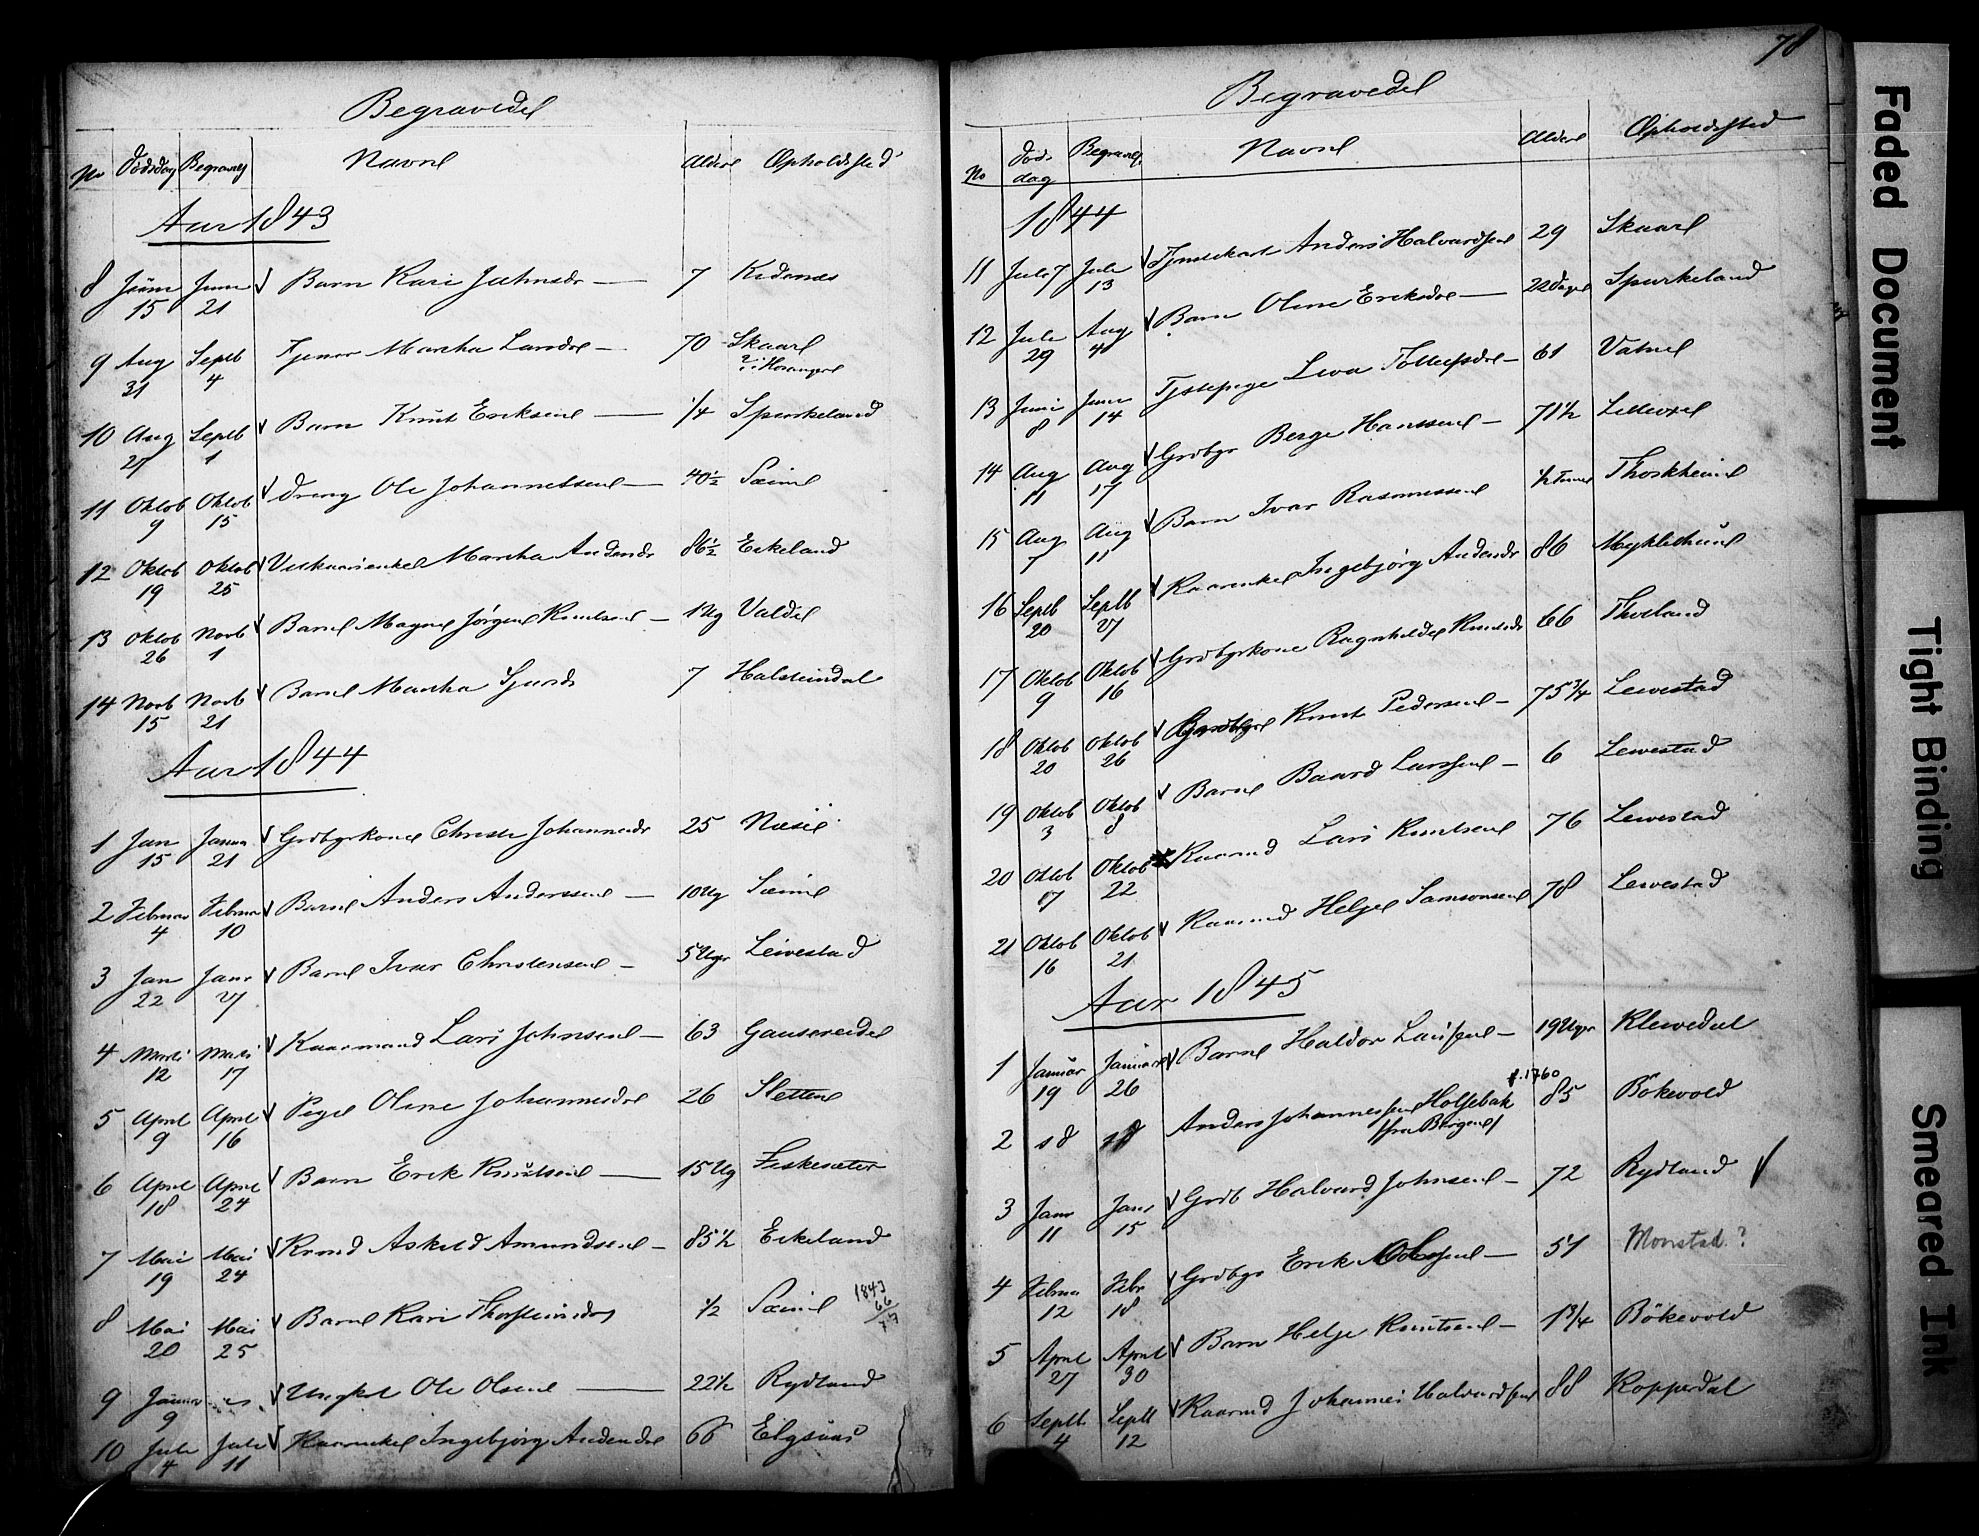 Begravede
No Dødsdag Begravels Navne Alder Opholdsted
Aar 1843
8 Juni 15 Juni 21 Barn Kari Johnsdr 7 Kidenæs
9 Aug 31 Septb 4 Martha Larsdr 70 Skaar
? i Hosanger
10 Aug 27 Septb 1 Barn Knut Eriksen 1/4 Spurkeland
11 Oktob 9 Oktob 15 Dreng Ole Johannessen 40½ Sæim
12 Oktob 19 Oktob 25 Martha Andersdr 86½ Eikeland
13 Oktob 26 Novb 1 Barn Magne Jørgen Knudsen 1 Ug Valde
14 Novb 15 Novb 21 Barn Martha Sjursdr 7 Halsteindal
Aar 1844
1 Jan 15 Janua 21 Grdbrkone Christi Johannesdr 25 Næse
2 Februar 4 Februa 10 Barn Anders Anderssen 10 Ug Sæim
3 Jan 22 Janr 27 Barn Ivar Christensen 5 Ugr Leivestad
4 Marts 12 Marts 17 Kaarmand Lars Johnsen 63 Gausereide
5 April 9 April 16 Pige Oline Johannesdr 26 Slette
6 April 18 April 24 Barn Erik Knutsen 15 Ug Fiskesæter
7 Mai 19 Mai 24 Krmd Askild Amundsen 85½ Eikeland
8 Mai 20 Mai 25 Barn Kari Thorsteinsdr ½ Sæim
9 Januar 9 Ungkel Ole Olsen 22½ Rydland
10 Juli 4 Juli 11 Kaarenke Ingebjørg Andersdr 66 Elgsaas
78
Begravede
No Døds dag Begravels Navne Alder Opholdsted
1844
11 Juli 7 Juli 13 Tjenestkarl Anders Halvardsen 29 Skaar
12 Juli 29 Aug 4 Barn Oline Eriksdr 22 Dage Spurkeland
13 Juni 8 Juni 14 Lewa Tollefsdr 61 Vatne
14 Aug 11 Aug 17 Grdbgr Berge Hanssen 71½ Lilleoxe
15 Aug 7 Aug 11 Barn Ivar Rasmussen ½ Time Thoskheim
16 Septb 20 Septb 27 Kaarenke Ingebjørg Andersdr 86 Myklethun
17 Oktob 9 Oktob 16 Grdbgrkone Ragnhilde Knutsdr 66 Thveland
18 Oktob 20 Oktob 26 Grdbgr Knut Pedersen 75 3/4 Lewestad
19 Oktob 3 Oktob 8 Barn Baard Larssen 6 Lewestad
20 Oktob 17 Oktob 22 Kaarmd Lars Knutsen 76 Lewestad
21 Oktob 16 Oktob 21 Kaarmd Helge Samsonsen 78 Lewestad
Aar 1845
1 Januar 19 Januar 26 Barn Haldor Larssen 19 Ugr Klewedal
f. 1760
2 sd sd Anders Johannessen Holsebak 85 Bökevold
/fra Bergen/
3 Janr 11 Janr 15 Grdb Halvard Johnsen 72 Rydland
4 Februa 12 Febr 18 Grdbgr Erik Olssen 51 Monstad?
5 April 27 April 30 Barn Helge Knutsen 1 3/4 Bökevold
6 Septb 4 Septb 12 Kaarmd Johannes Halvardsen 88 Kopperdal
Faded Document
Tight Binding
Smeared Ink